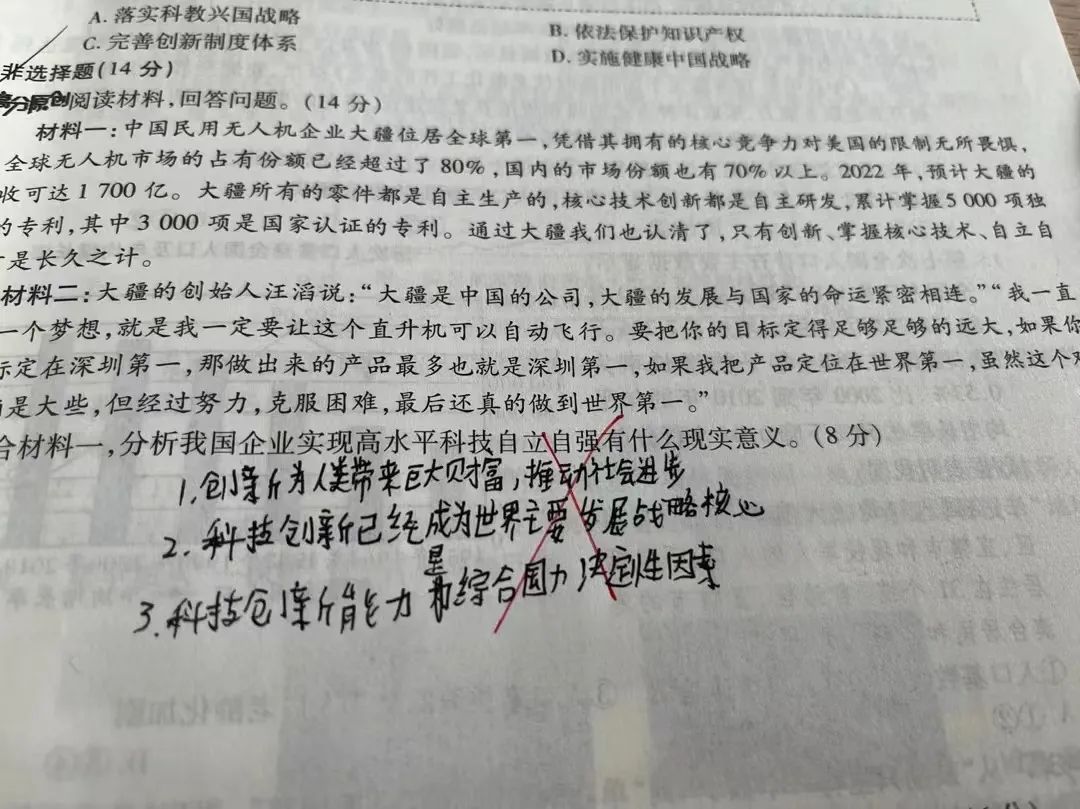 A. 落实科教兴国战略
B. 依法保护知识产权
C. 完善创新制度体系
D. 实施健康中国战略
非选择题(14 分)
高分原创 阅读材料，回答问题。(14 分)
材料一：中国民用无人机企业大疆位居全球第一，凭借其拥有的核心竞争力对美国的限制无所畏惧，
全球无人机市场的占有份额已经超过了 80%，国内的市场份额也有 70% 以上。2022 年，预计大疆的
收可达 1 700 亿。大疆所有的零件都是自主生产的，核心技术创新都是自主研发，累计掌握 5 000 项独
的专利，其中 3 000 项是国家认证的专利。通过大疆我们也认清了，只有创新、掌握核心技术、自立自
是长久之计。
材料二：大疆的创始人汪滔说：“大疆是中国的公司，大疆的发展与国家的命运紧密相连。”“我一直
一个梦想，就是我一定要让这个直升机可以自动飞行。要把你的目标定得足够足够的远大，如果你
标定在深圳第一，那做出来的产品最多也就是深圳第一，如果我把产品定位在世界第一，虽然这个
是大些，但经过努力，克服困难，最后还真的做到世界第一。”
合材料一，分析我国企业实现高水平科技自立自强有什么现实意义。(8 分)
1. 创新为人类带来巨大财富，推动社会进步
2. 科技创新已经成为世界主要发展战略核心
3. 科技创新能力是综合国力决定性因素